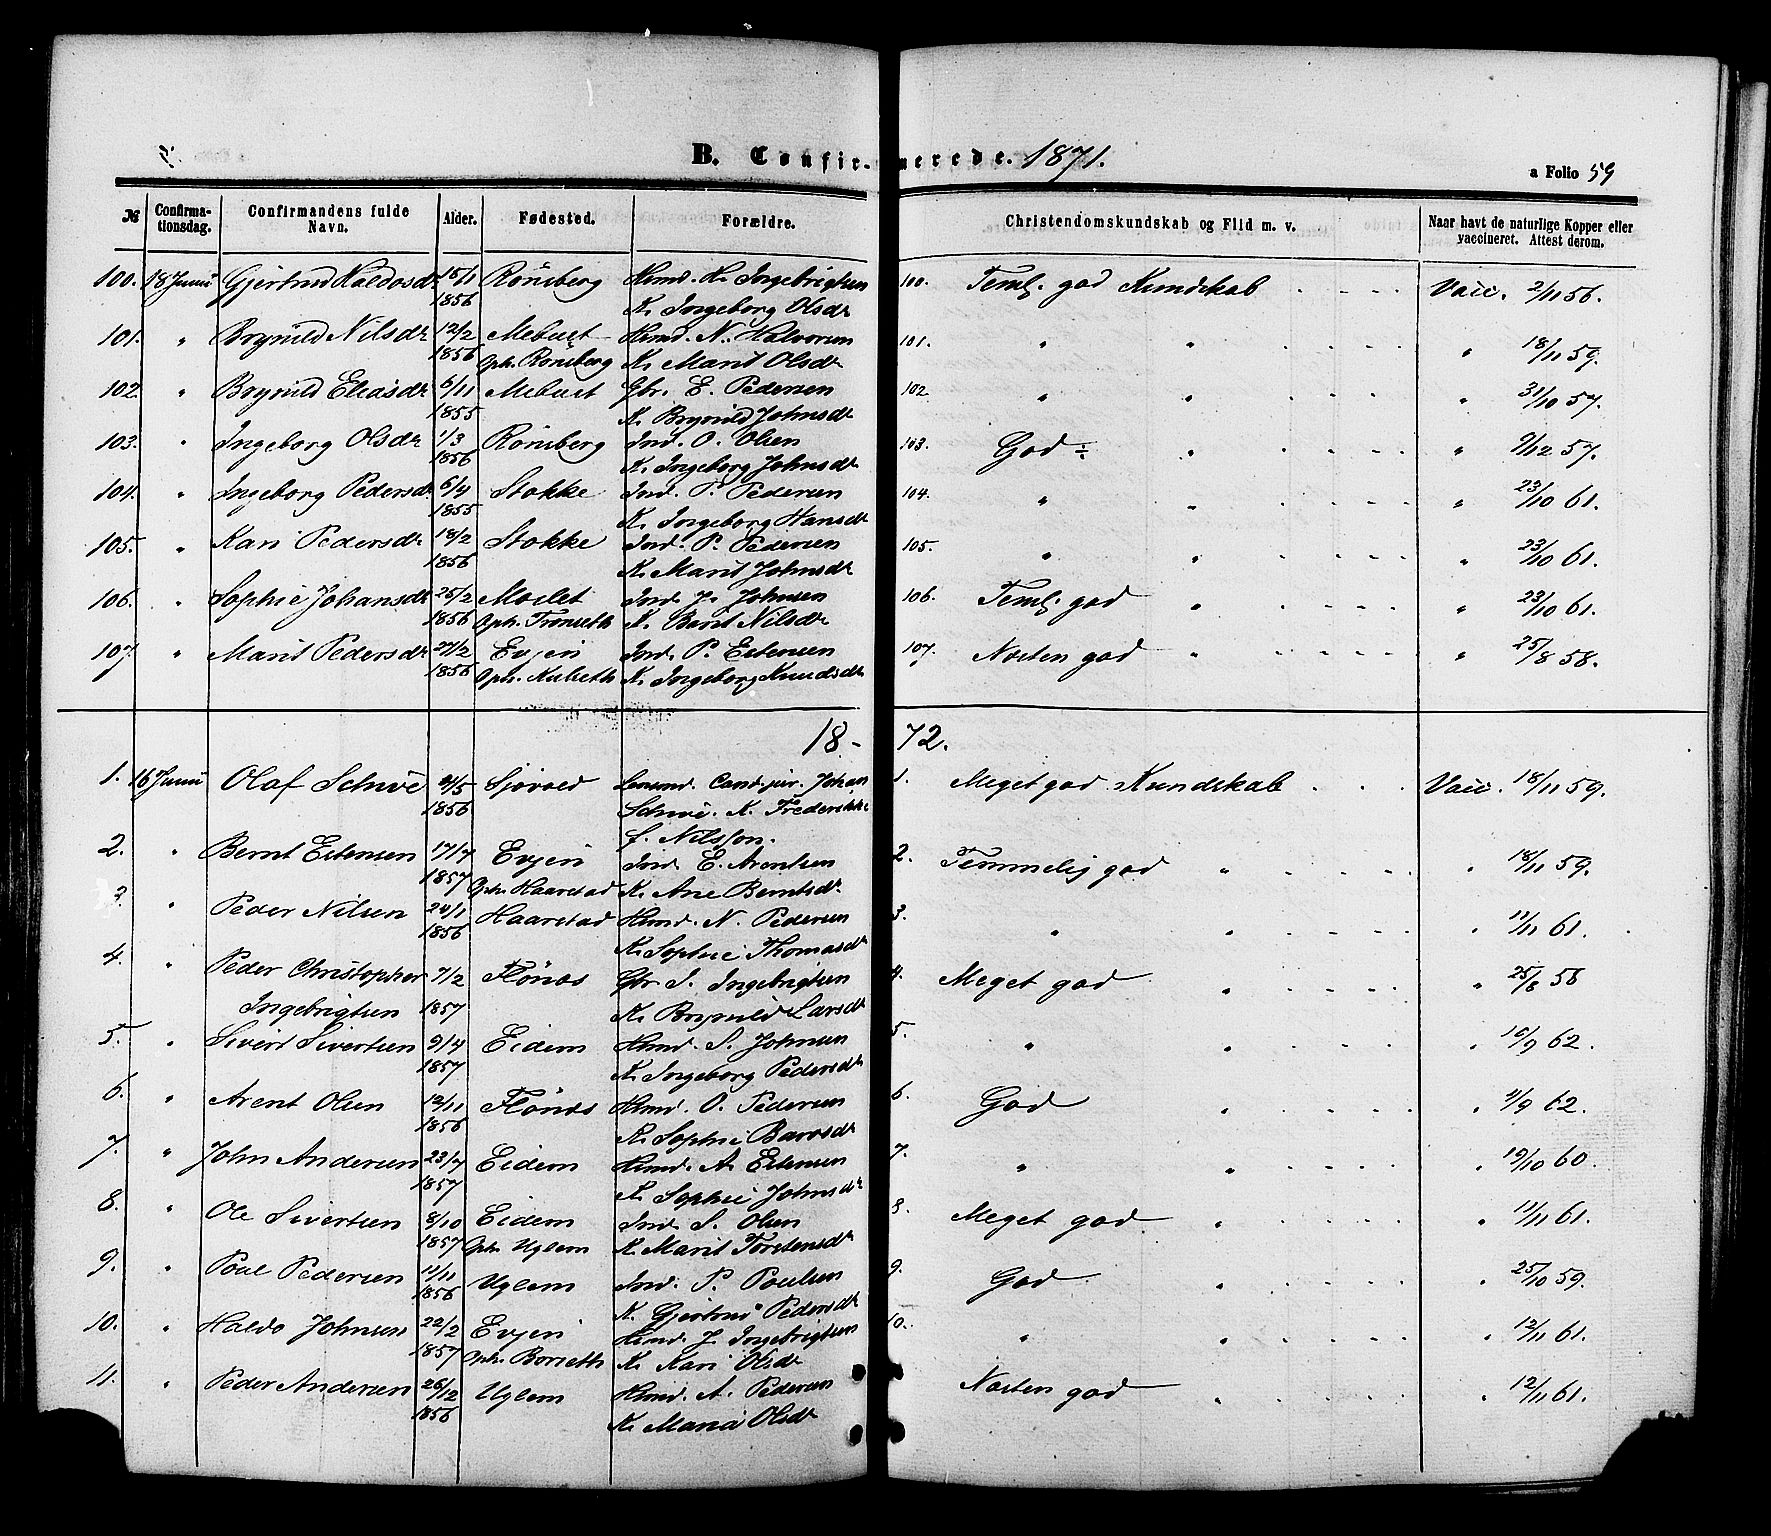 B. Confirmerede. 1871.
a Folio 59
№ Confirmationsdag. Confirmandens fulde Navn. Alder. Fødested. Forældre. Christendomskundskab og Flid m. v. Naar havt de naturlige Kopper eller vaccineret. Attest derom.
100. 18 Juni Gjertrud Haldosdr 15/11 Rønsberg Hmd. H. Ingebrigtsen 100. Teml. god Kundskab . - - - Vacc. 2/11 56.
1856 K. Ingeborg Olsdr
101. " Brynild Nilsdr 12/2 Mebust Hmd. N. Halvorsen 101. " " . - - - " 18/11 59.
1856 Oph. Rønsberg K. Marit Olsdr
102. " Brynild Eliasdr 6/11 Mebust Gbr. E. Pedersen 102. " " . - - - " 31/10 57.
1855 K. Brynild Johnsdr
103. " Ingeborg Olsdr 1/3 Rønsberg Ind. O. Olsen 103. God ÷ " . - - - " 9/12 57.
1856 K. Ingeborg Johnsdr
104. " Ingeborg Pedersdr 6/4 Stokke Ind. P. Pedersen 104. " " . - - - " 23/10 61.
1855 K. Ingeborg Hansdr
105. " Kari Pedersdr 18/2 Stokke Ind. P. Pedersen 105. " " . - - - " 23/10 61.
1856 K. Marit Johnsdr
106. " Sophie Johansdr 25/2 Moslet Ind. J. Johnsen 106. Teml. god " . - - - " 23/10 61.
1856 Oph. Trønseth K. Berit Nilsdr
107. " Marit Pedersdr 27/2 Evjen Ind. P. Estensen 107. Næsten god " . - - - " 25/8 58.
1856 Oph. K. Ingeborg Knudsdr
18-72.
1. 16 Juni Olaf Schive 24/5 Sjøvold Lensmd. Cand. jur. Johan 1. Meget god Kundskab . . . Vacc. 18/11 59.
1856 Schive K. Frederikke
f. Nilsson.
2. " Bernt Estensen 17/7 Evjen Ind. E. Arentsen 2. Temmelig god " . - - - " 18/11 59.
1857 Oph. Haarstad K. Ane Berntsdr.
3. " Peder Nilsen 24/1 Haarstad Hmd. N. Pedersen 3. " " . - - - " 11/11 61.
1856 K. Sophie Thomasdr
4. " Peder Christopher 7/2 Flønæs Gbr. I. Ingebrigtsen 4. Meget god " . - - - " 25/8 58
Ingebrigtsen 1857 K. Brynild Larsdr
5. " Sivert Sivertsen 9/4 Eidem Hmd. S. Johnsen 5. " " . - - - " 16/9 62.
1857 K. Ingeborg Pedersdr
6. " Arent Olsen 12/11 Flønæs Hmd. O. Pedersen 6. God " . - - - " 11/9 62.
1856 K. Sophie Barosdr
7. " John Andersen 23/7 Eidem Hmd. A. Estensen 7. " " . - - - " 19/10 60.
1857 K. Sophie Johnsdr
8. " Ole Sivertsen 8/10 Eidem Ind. S. Olsen 8. Meget god " . - - - " 11/11 61.
1857 Oph. Uglem K. Marit Torstensdr
9. " Poul Pedersen 11/11 Uglem Ind. P. Poulsen 9. God " . - - - " 25/10 59.
1856 K. Gjertrud Pedersdr
10. " Haldo Johnsen 22/2 Evjen Hmd. J. Ingebrigtsen 10. " " . - - - " 12/11 61.
1857 Oph. Borseth K. Kari Olsdr
11. " Peder Andersen 26/12 Uglem Hmd. A. Pedersen Næsten god " . - - - " 12/11 61.
1856 K. Maria Olsdr